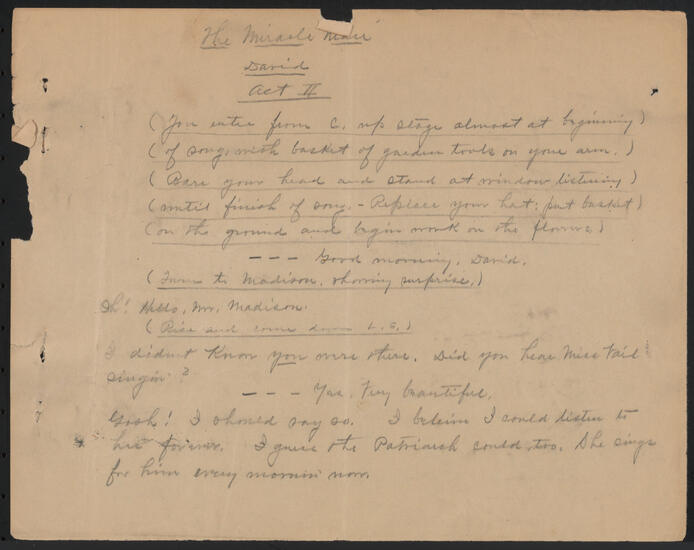 The Miracle Man
David
Act II
(You enter from C. up stage almost at beginning)
(of song, with basket of garden tools on your arm.)
(Bare your head and stand at window listening)
(until finish of song. - Replace your hat; put basket)
(on the ground and begin work on the flowers)
--- Good morning, David.
(Turn to Madison, showing surprise.)
Oh! Hello, Mr. Madison.
(Rise and come down L.C.)
I didn't know you were there. Did you hear Miss Vail
singin'?
--- Yes, Very beautiful.
Gosh! I should say so. I beleive I could listen to
her forever. I guess the Patriarch could, too. She sings
for him every mornin' now.